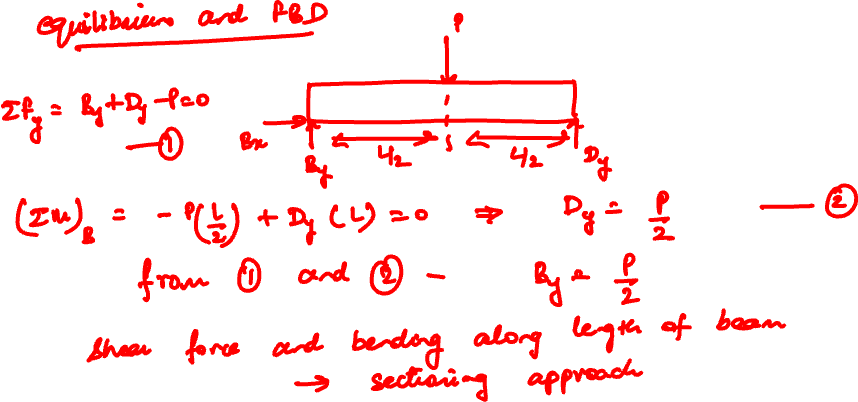 equilibrium and FBD
P
ΣFy = By + Dy - P = 0
— ①
Bx
By
L/2
L/2
Dy
(ΣM)B = - P(L/2) + Dy (L) = 0 ⇒ Dy = P/2 — ②
from ① and ② - By = P/2
Shear force and bending along length of beam
→ sectioning approach